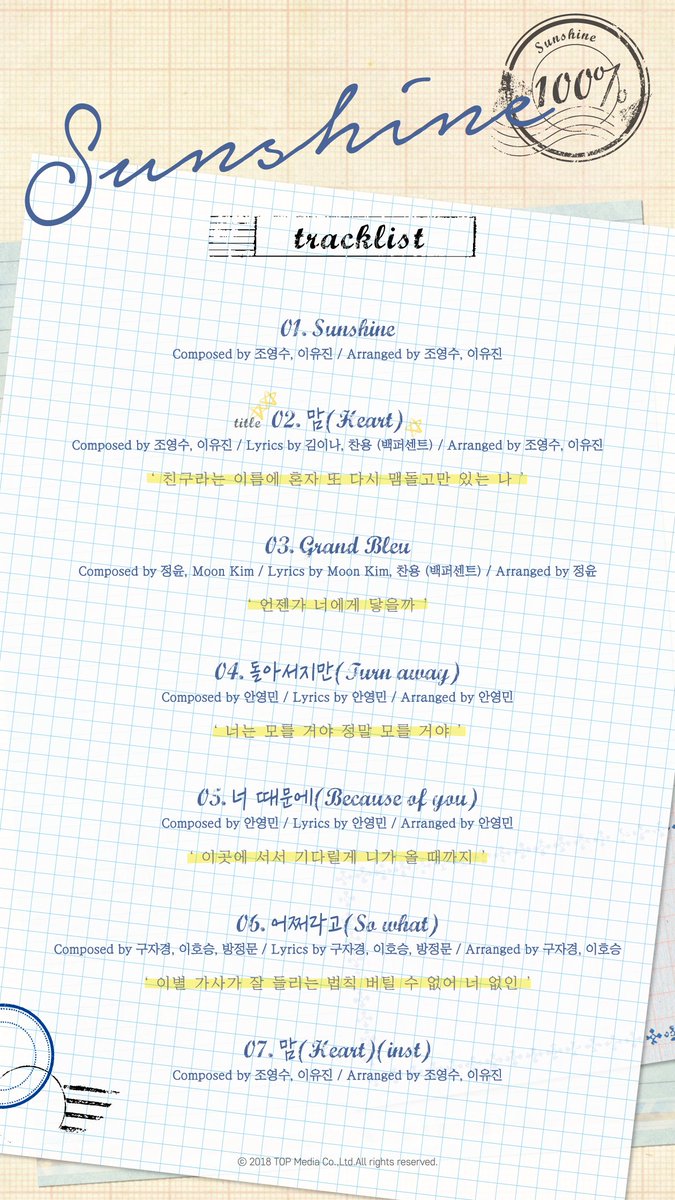 Sunshine
100%
Sunshine
tracklist
01. Sunshine
Composed by 조영수, 이유진 / Arranged by 조영수, 이유진
title 02. 맘(Heart)
Composed by 조영수, 이유진 / Lyrics by 김이나, 찬용 (백퍼센트) / Arranged by 조영수, 이유진
‘ 친구라는 이름에 혼자 또 다시 맴돌고만 있는 나 ’
03. Grand Bleu
Composed by 정윤, Moon Kim / Lyrics by Moon Kim, 찬용 (백퍼센트) / Arranged by 정윤
‘ 언젠가 너에게 닿을까 ’
04. 돌아서지만(Turn away)
Composed by 안영민 / Lyrics by 안영민 / Arranged by 안영민
‘ 너는 모를 거야 정말 모를 거야 ’
05. 너 때문에(Because of you)
Composed by 안영민 / Lyrics by 안영민 / Arranged by 안영민
‘ 이곳에 서서 기다릴게 니가 올 때까지 ’
06. 어쩌라고(So what)
Composed by 구자경, 이호승, 방정문 / Lyrics by 구자경, 이호승, 방정문 / Arranged by 구자경, 이호승
‘ 이별 가사가 잘 들리는 법칙 버틸 수 없어 너 없인 ’
07. 맘(Heart)(inst)
Composed by 조영수, 이유진 / Arranged by 조영수, 이유진
© 2018 TOP Media Co.,Ltd.All rights reserved.